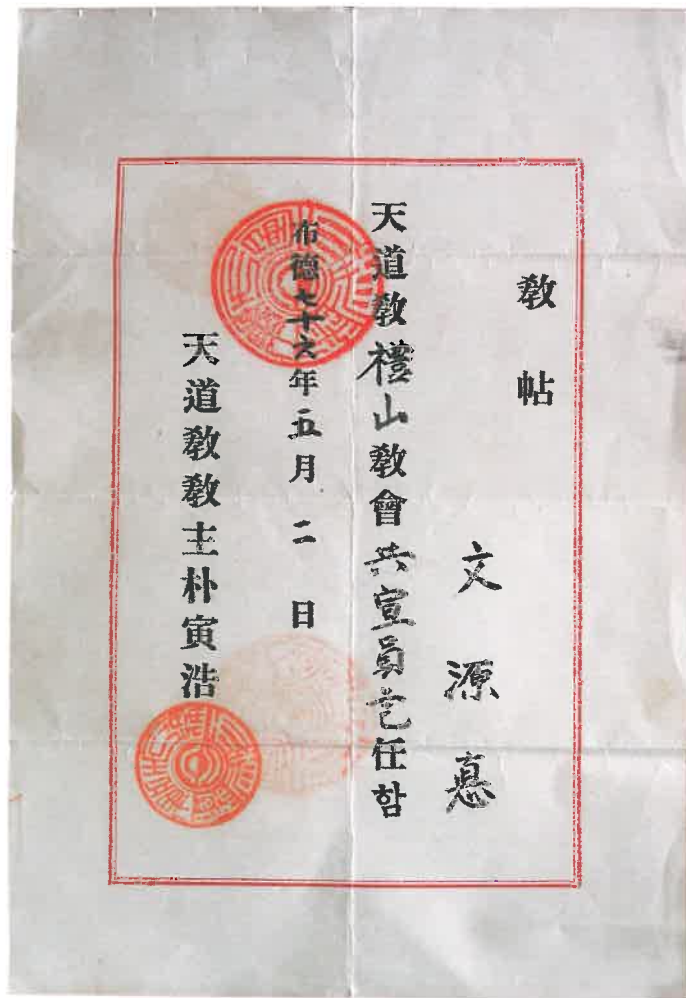 敎帖
文源悳
天道敎禮山敎會共宣員로任함
布德七十六年五月二日
天道敎敎主朴寅浩